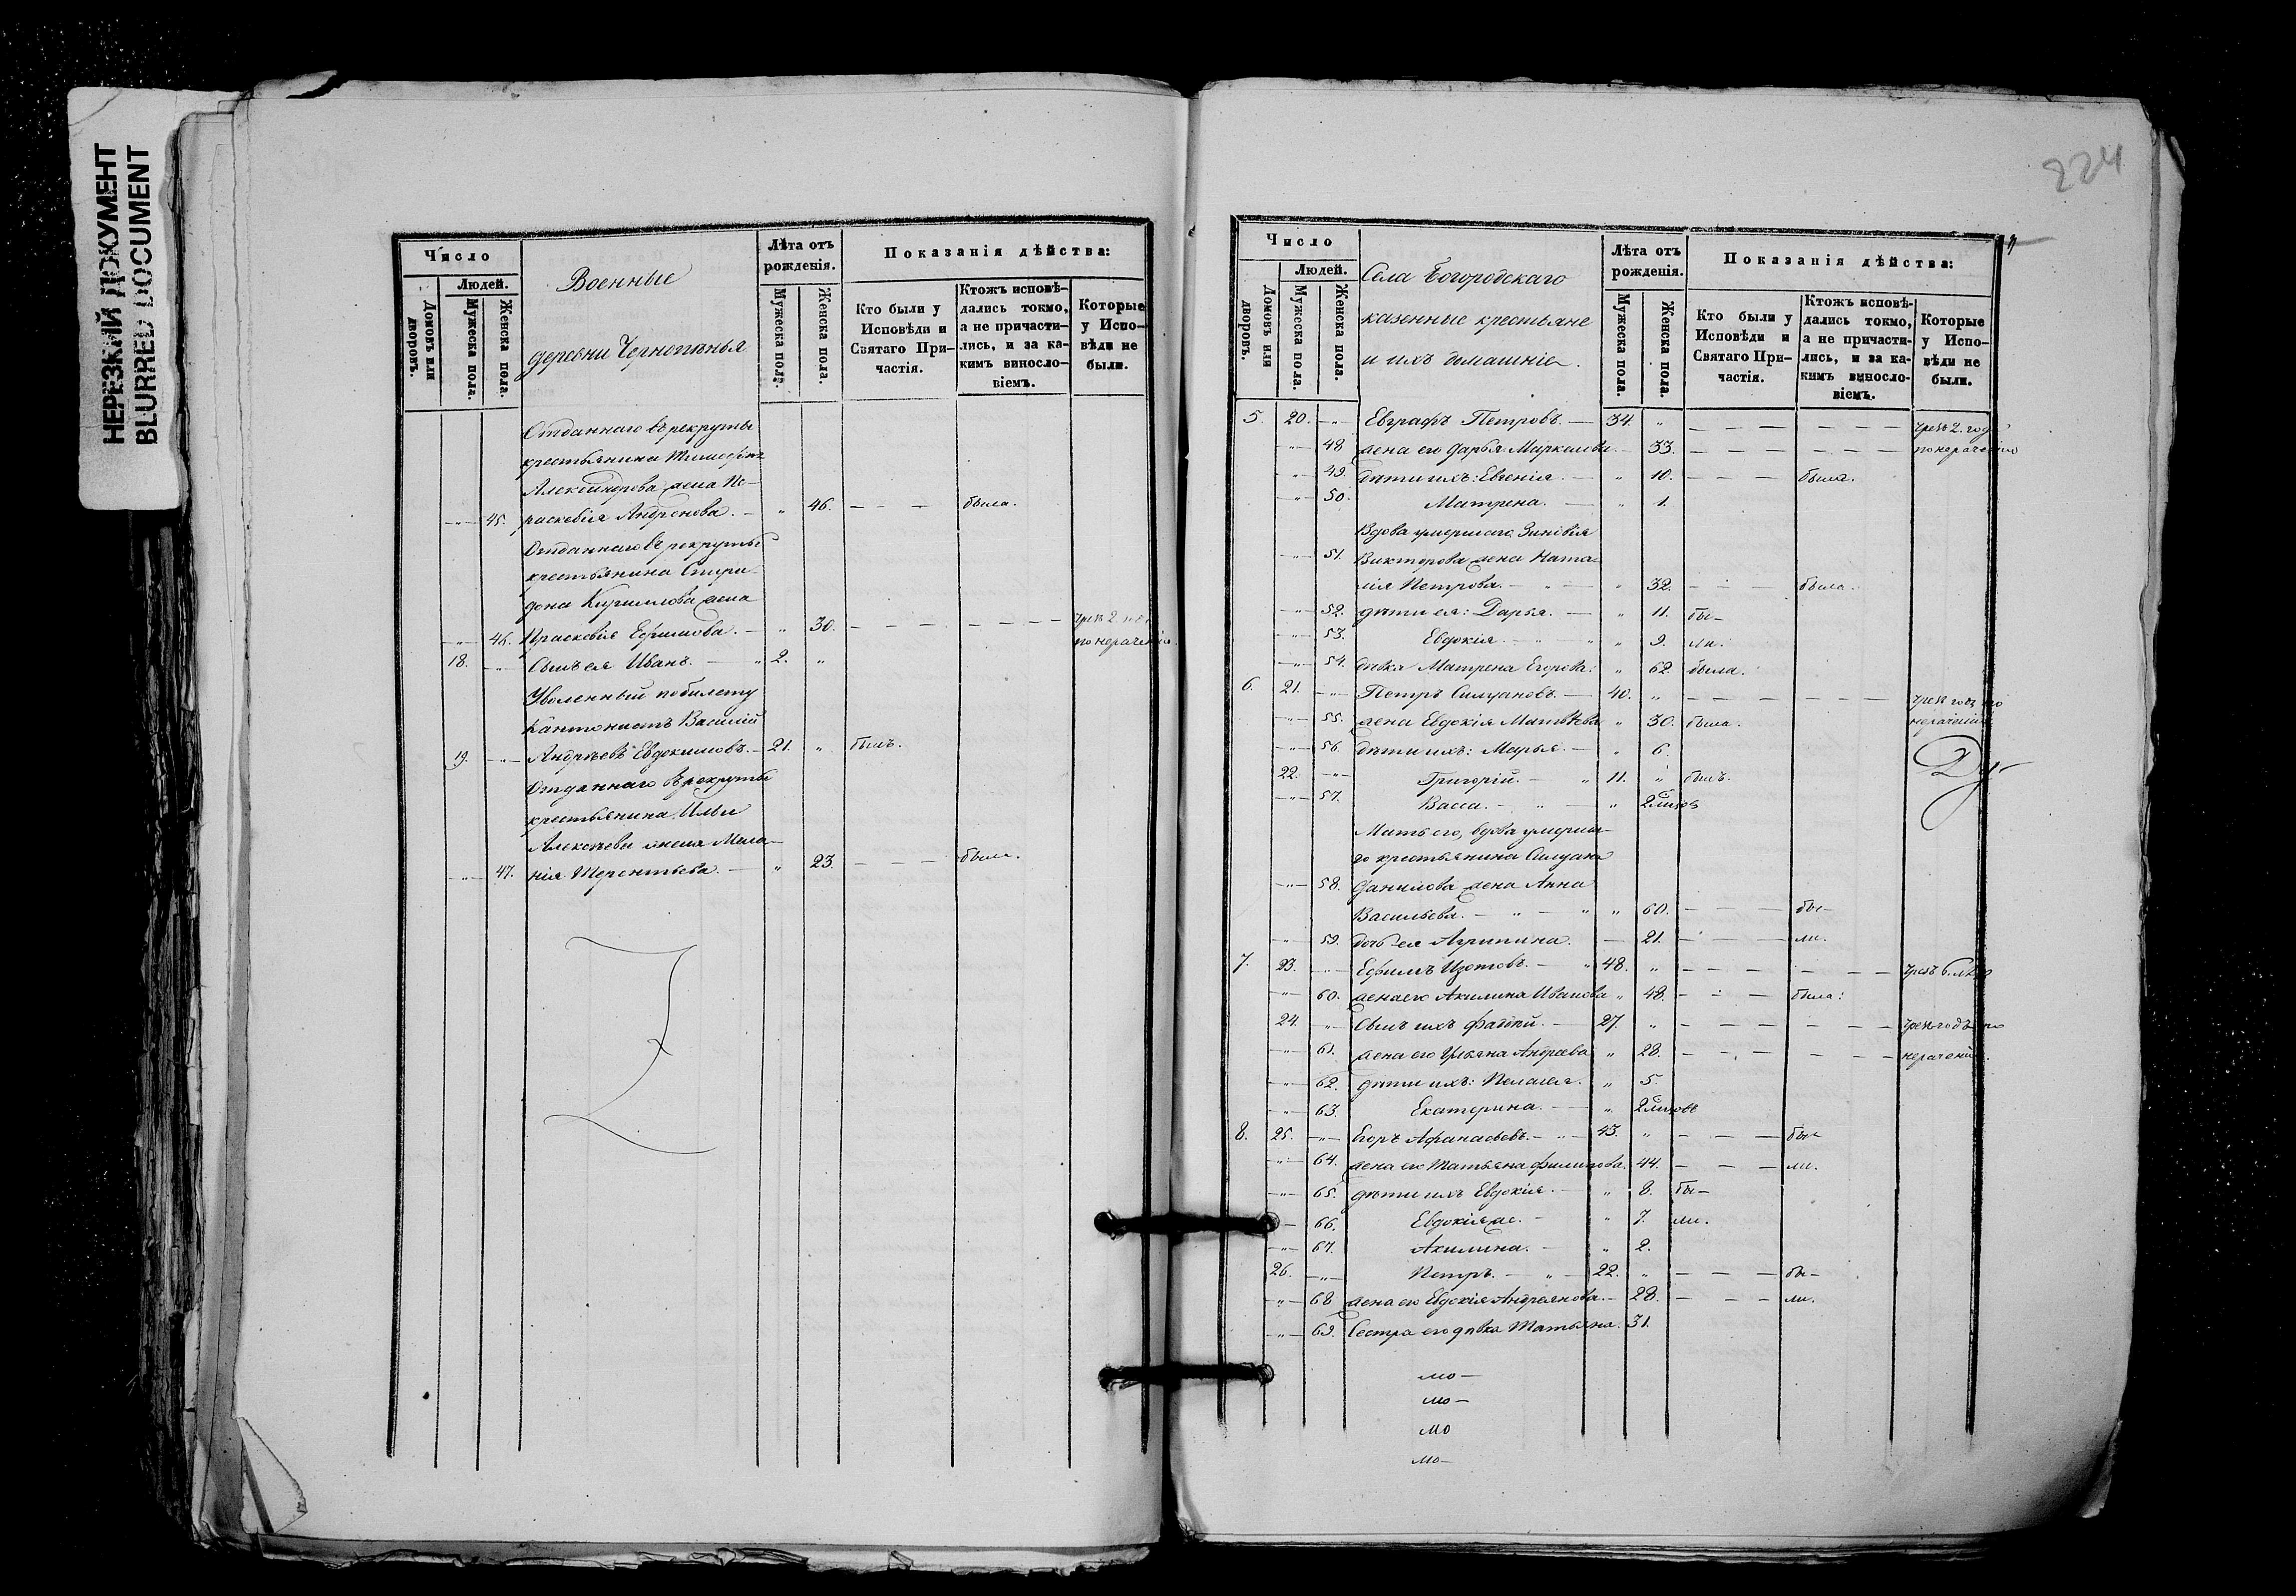 НЕРЕЗКИЙ ДОКУМЕНТ
BLURRED DOCUMENT
Число
Людей.
Домовъ или дворовъ.
Мужеска пола.
Женска пола.
Военные
деревни
Лѣта отъ рожденія.
Мужеска пола.
Женска пола.
Показанія дѣйства:
Кто были у Исповѣди и Святаго Причастія.
Ктожъ исповѣдались токмо, а не причастились, и за какимъ винословіемъ.
Которые у Исповѣди не были.
Отданнаго въ рекруты
крестьянина Тимофея
Александрова жена Па-
45. раскевія Андронова. — " 46. — — — была.
Отданнаго въ рекруты
крестьянина Спири-
дона Кириллова жена
46. Праскевія Ефимова. — " 30. — — — — — — чрезъ 2 по нераченію
18. Сынъ ея Иванъ. — " 2. "
Уволенный по билету
Кантонистъ Василій
19. Андреевъ Евдокимовъ. — 21. " былъ.
Отданнаго въ рекруты
крестьянина Ильи
Алексѣева жена Мела-
47. нія Терентьева. — " 23. — — — была.
224
Число
Людей.
Домовъ или дворовъ.
Мужеска пола.
Женска пола.
Села Богородскаго
казенные крестьяне
и ихъ домашніе.
Лѣта отъ рожденія.
Мужеска пола.
Женска пола.
Показанія дѣйства:
Кто были у Исповѣди и Святаго Причастія.
Ктожъ исповѣдались токмо, а не причастились, и за какимъ винословіемъ.
Которые у Исповѣди не были.
5. 20. — Евграфъ Петровъ. — 34. " — — — — — — чрезъ 2. года
48 жена его Дарья Маркелова. — 33. — — — — — — по нераченію
49. дѣти ихъ: Евгенія. — " 10. — — — была.
50. Матрена. — " 1.
Вдова умершаго Зиновія
51. Викторова жена Ната-
лія Петрова. — " — " 32. — — — была.
52. дѣти ея: Дарья. — " 11. бы-
53. Евдокія. — " " 9. ли.
54. дѣвка Матрена Егорова. " 62. была.
6. 21. — Петръ Силуановъ. — 40. " — — — — — — чрезъ годъ по
55. жена Евдокія Матвѣева " 30. была. нераченію
56. дѣти ихъ: Марья. — " 6.
22. Григорій. — " 11. " былъ.
57. Васса. — " — " 2
Мать его, вдова умерша-
го крестьянина Силуана
58. Данилова жена Анна
Васильева. — " — " " 60. — — — бы-
59. дочь ея Агрипина. — 21. — — — ли.
7. 23. — Ефимъ Изотовъ. — " 48. " — — — — — — чрезъ 6. лѣтъ
60. жена его Акилина Иванова " 48. — — — была:
24. Сынъ ихъ Фадѣй. — 27. " — — — — — — чрезъ годъ по
61. жена его Ульяна Андреева " 28. — — — — — — нераченію.
62. дѣти ихъ: Пелагея. " 5.
63. Екатерина. — " 2
8. 25. — Егоръ Афанасьевъ. — " — 43. " — — — бы-
64. жена его Татьяна Филипова. 44. — — — ли.
65. дѣти ихъ Евдокія. — " 8. бы-
66. Евдокія же. — " 7. ли.
67. Акилина. — " 2.
26. Петръ. — " — 22. " — — — бы-
68 жена его Евдокія Андреянова. — 28. — — — ли.
69. Сестра его дѣвка Татьяна. 31.
мо —
мо —
мо
мо —